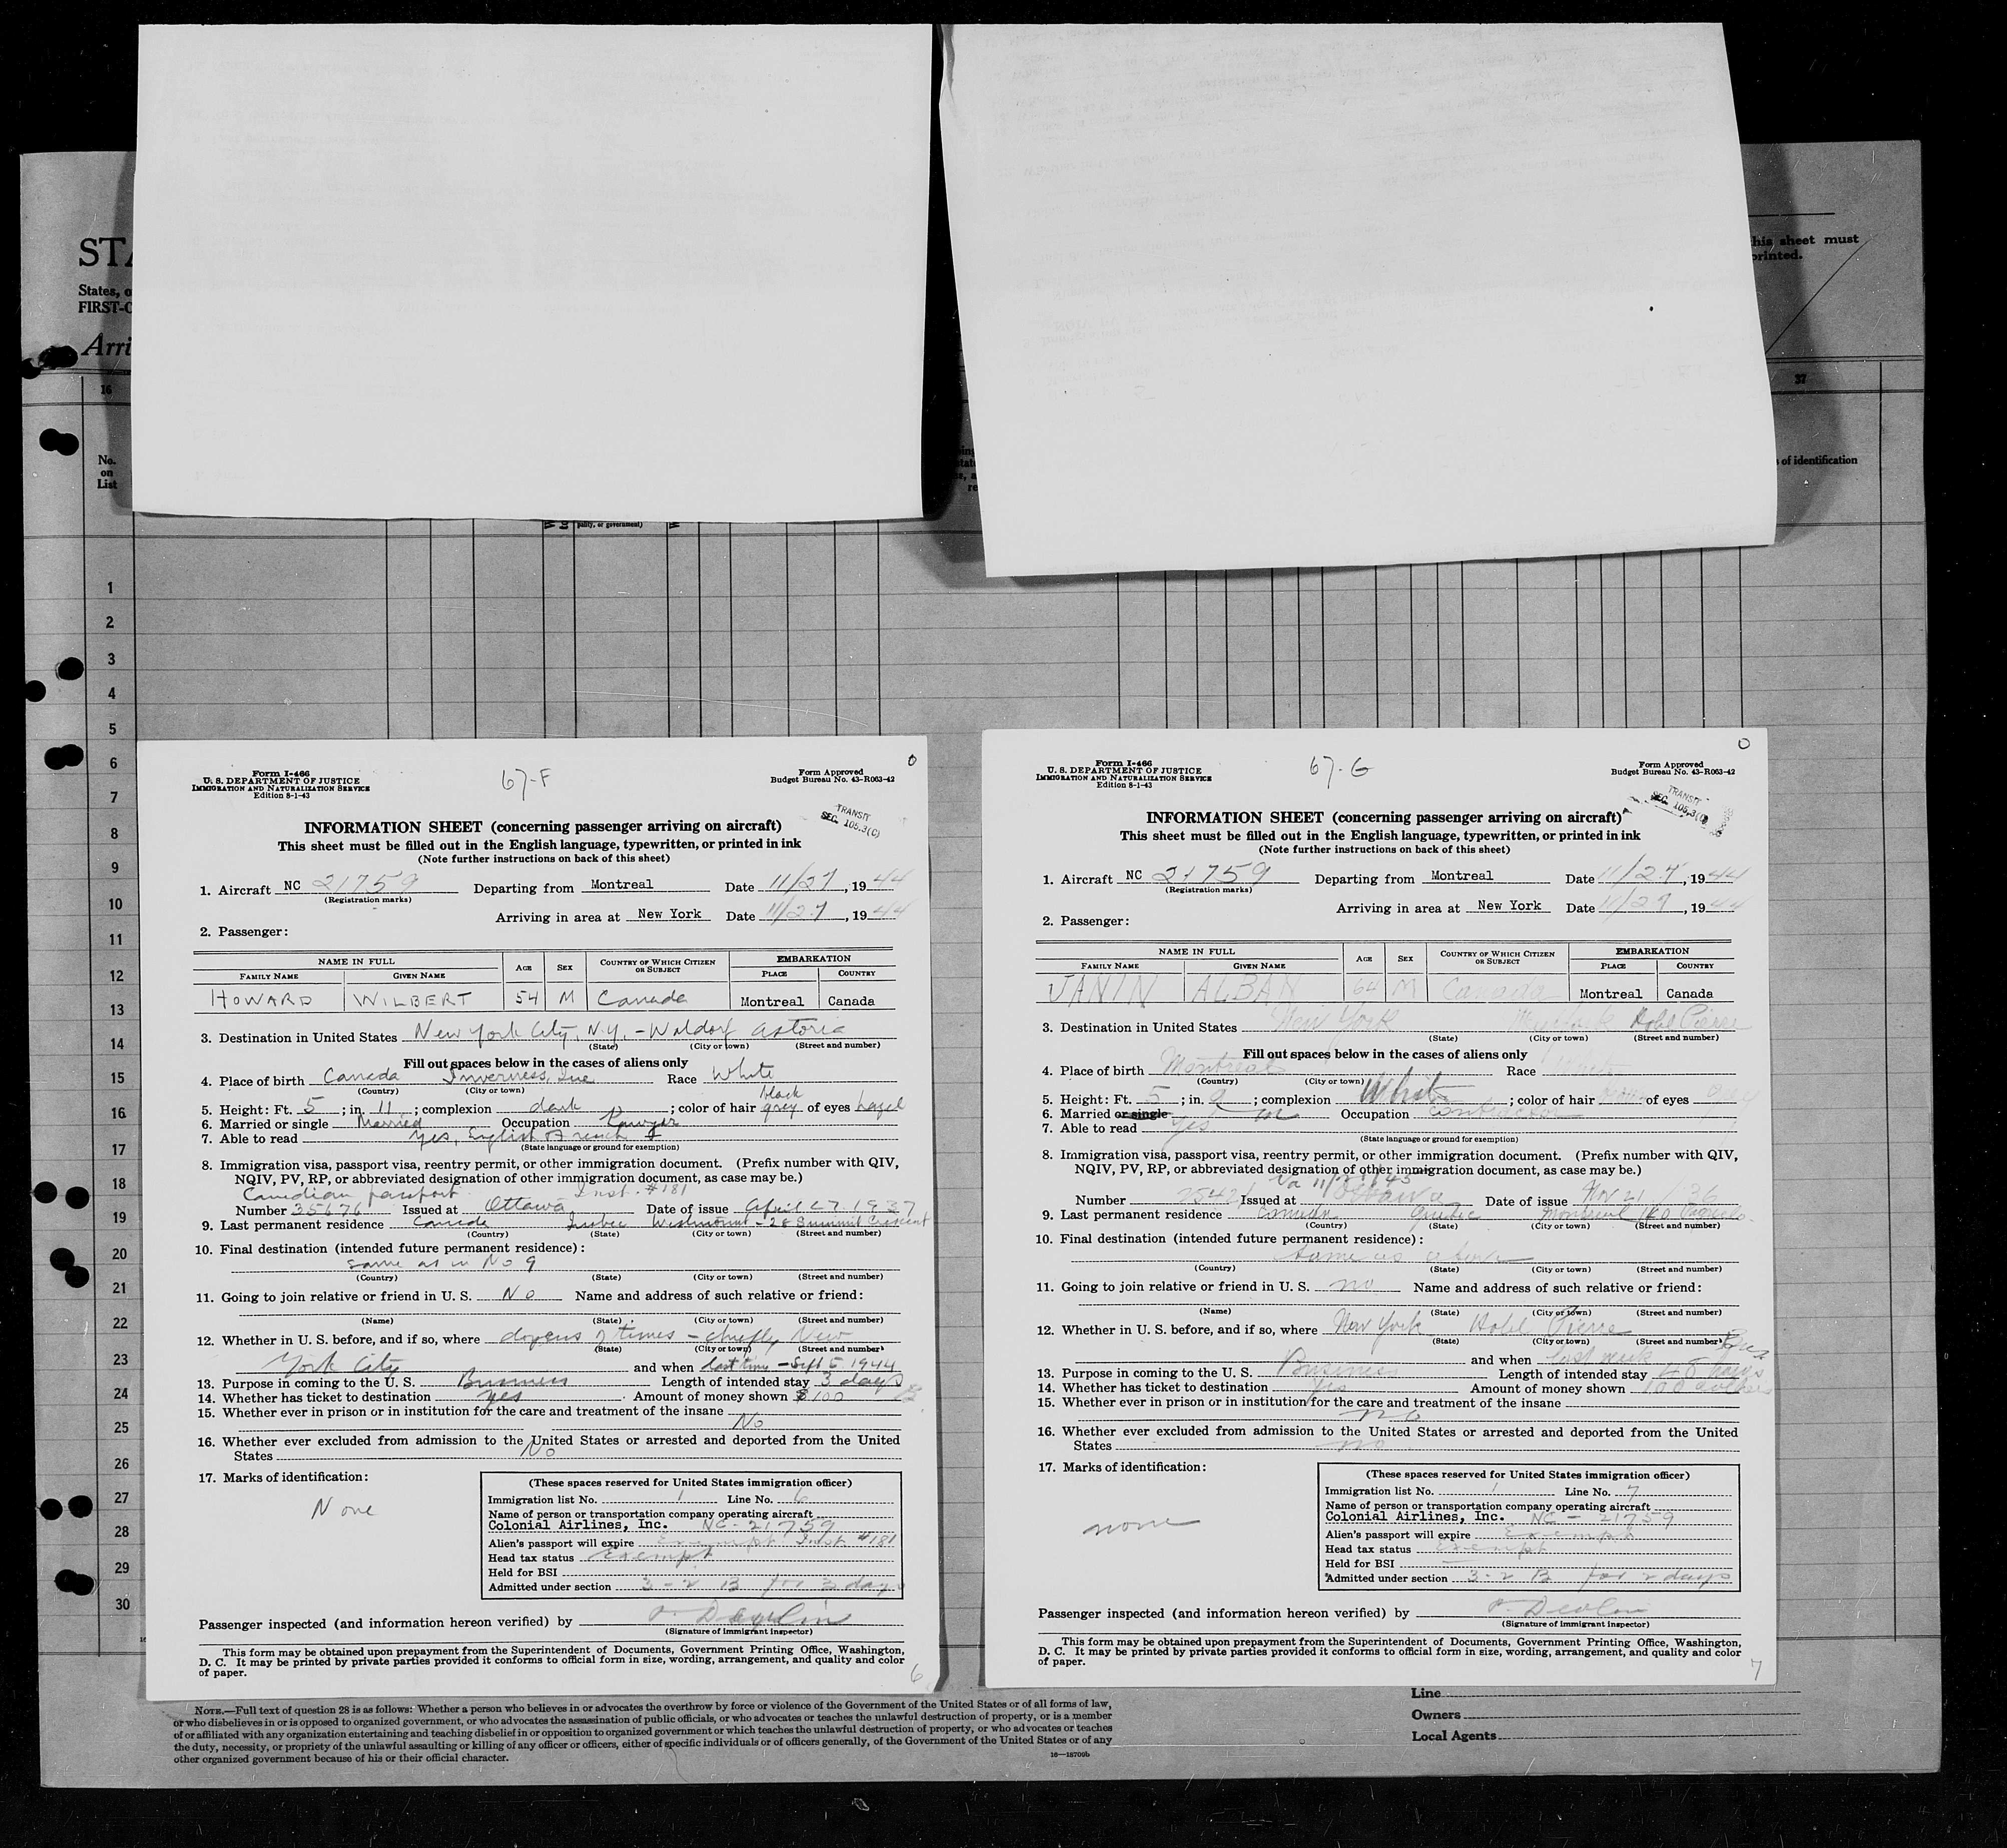 STA
States, o
FIRST-C
Arri
his sheet must
printed.
16
37
No.
on
List
of identification
pality, or government)
1
2
3
4
5
6
7
8
9
10
11
12
13
14
15
16
17
18
19
20
21
22
23
24
25
26
27
28
29
30
Form I-466
U. S. DEPARTMENT OF JUSTICE
IMMIGRATION AND NATURALIZATION SERVICE
Edition 8-1-43
67-F
Form Approved
Budget Bureau No. 43-R063-42
0
TRANSIT
SEC. 105.3(C)
INFORMATION SHEET (concerning passenger arriving on aircraft)
This sheet must be filled out in the English language, typewritten, or printed in ink
(Note further instructions on back of this sheet)
1. Aircraft NC 21759 Departing from Montreal Date 11/27, 1944
(Registration marks)
Arriving in area at New York Date 11/27, 1944
2. Passenger:
NAME IN FULL AGE SEX COUNTRY OF WHICH CITIZEN OR SUBJECT EMBARKATION
FAMILY NAME GIVEN NAME PLACE COUNTRY
HOWARD WILBERT 54 M Canada Montreal Canada
3. Destination in United States New York City, N.Y. - Waldorf Astoria
(State) (City or town) (Street and number)
Fill out spaces below in the cases of aliens only
4. Place of birth Canada Inverness, Que Race White
(Country) (City or town)
black
5. Height: Ft. 5; in. 11; complexion dark; color of hair grey of eyes hazel
6. Married or single Married Occupation Lawyer
7. Able to read yes, English & French
(State language or ground for exemption)
8. Immigration visa, passport visa, reentry permit, or other immigration document. (Prefix number with QIV,
NQIV, PV, RP, or abbreviated designation of other immigration document, as case may be.)
Canadian passport Inst. #181
Number 35676 Issued at Ottawa Date of issue April 27 1937
9. Last permanent residence Canada Quebec Westmount - 28 Summit Crescent
(Country) (State) (City or town) (Street and number)
10. Final destination (intended future permanent residence):
same as in No 9
(Country) (State) (City or town) (Street and number)
11. Going to join relative or friend in U. S. No Name and address of such relative or friend:
(Name) (State) (City or town) (Street and number)
12. Whether in U. S. before, and if so, where dozens of times - chiefly New
(State) (City or town) (Street and number)
York City and when last time - Sept 5 1944
13. Purpose in coming to the U. S. Business Length of intended stay 3 days
14. Whether has ticket to destination yes Amount of money shown $100
15. Whether ever in prison or in institution for the care and treatment of the insane
No
16. Whether ever excluded from admission to the United States or arrested and deported from the United
States No
17. Marks of identification:
None
(These spaces reserved for United States immigration officer)
Immigration list No. 1 Line No. 6
Name of person or transportation company operating aircraft
Colonial Airlines, Inc. NC-21759
Alien's passport will expire Exempt Inst #181
Head tax status Exempt
Held for BSI
Admitted under section 3-2 B for 3 days
Passenger inspected (and information hereon verified) by P. Devlin
(Signature of immigrant inspector)
This form may be obtained upon prepayment from the Superintendent of Documents, Government Printing Office, Washington,
D. C. It may be printed by private parties provided it conforms to official form in size, wording, arrangement, and quality and color
of paper.
6
Form I-466
U. S. DEPARTMENT OF JUSTICE
IMMIGRATION AND NATURALIZATION SERVICE
Edition 8-1-43
67-G
Form Approved
Budget Bureau No. 43-R063-42
0
TRANSIT
SEC. 105.3(C)
INFORMATION SHEET (concerning passenger arriving on aircraft)
This sheet must be filled out in the English language, typewritten, or printed in ink
(Note further instructions on back of this sheet)
1. Aircraft NC 21759 Departing from Montreal Date 11/27, 1944
(Registration marks)
Arriving in area at New York Date 11/27, 1944
2. Passenger:
NAME IN FULL AGE SEX COUNTRY OF WHICH CITIZEN OR SUBJECT EMBARKATION
FAMILY NAME GIVEN NAME PLACE COUNTRY
JANIN ALBAN 64 M Canada Montreal Canada
3. Destination in United States New York Hotel Pierre
(State) (City or town) (Street and number)
Fill out spaces below in the cases of aliens only
4. Place of birth Montreal Race White
(Country) (City or town)
5. Height: Ft. 5; in. 9; complexion White; color of hair of eyes
6. Married or single m Occupation Contractor
7. Able to read yes
(State language or ground for exemption)
8. Immigration visa, passport visa, reentry permit, or other immigration document. (Prefix number with QIV,
NQIV, PV, RP, or abbreviated designation of other immigration document, as case may be.)
Number Issued at Ottawa Date of issue Nov 21 / 36
9. Last permanent residence Canada Quebec Montreal
(Country) (State) (City or town) (Street and number)
10. Final destination (intended future permanent residence):
Same as above
(Country) (State) (City or town) (Street and number)
11. Going to join relative or friend in U. S. no Name and address of such relative or friend:
(Name) (State) (City or town) (Street and number)
12. Whether in U. S. before, and if so, where New York Hotel Pierre
(State) (City or town) (Street and number)
and when last week
13. Purpose in coming to the U. S. Business Length of intended stay 48 hours
14. Whether has ticket to destination Yes Amount of money shown 100 dollars
15. Whether ever in prison or in institution for the care and treatment of the insane
no
16. Whether ever excluded from admission to the United States or arrested and deported from the United
States no
17. Marks of identification:
none
(These spaces reserved for United States immigration officer)
Immigration list No. 1 Line No. 7
Name of person or transportation company operating aircraft
Colonial Airlines, Inc. NC - 21759
Alien's passport will expire Exempt
Head tax status Exempt
Held for BSI
Admitted under section 3-2 B for 2 days
Passenger inspected (and information hereon verified) by P Devlin
(Signature of immigrant inspector)
This form may be obtained upon prepayment from the Superintendent of Documents, Government Printing Office, Washington,
D. C. It may be printed by private parties provided it conforms to official form in size, wording, arrangement, and quality and color
of paper.
7
NOTE.—Full text of question 28 is as follows: Whether a person who believes in or advocates the overthrow by force or violence of the Government of the United States or of all forms of law,
or who disbelieves in or is opposed to organized government, or who advocates the assassination of public officials, or who advocates or teaches the unlawful destruction of property, or is a member
of or affiliated with any organization entertaining and teaching disbelief in or opposition to organized government or which teaches the unlawful destruction of property, or who advocates or teaches
the duty, necessity, or propriety of the unlawful assaulting or killing of any officer or officers, either of specific individuals or of officers generally, of the Government of the United States or of any
other organized government because of his or their official character.
16—18709b
Line
Owners
Local Agents